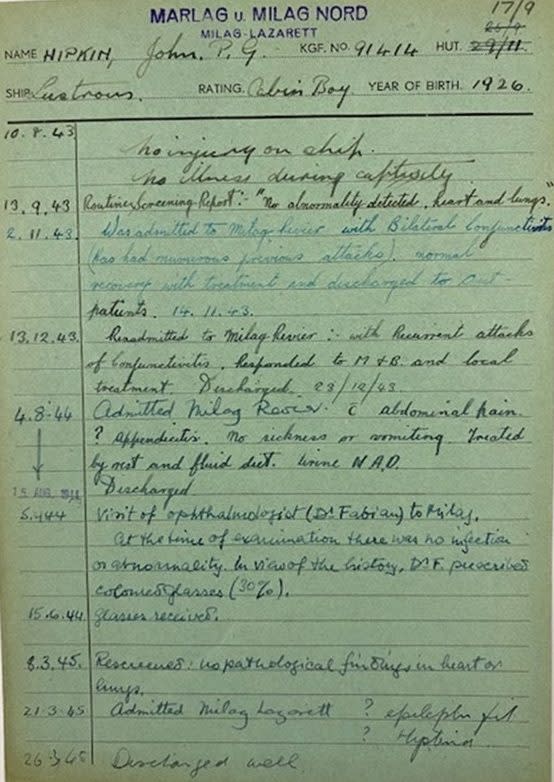 17/9
MARLAG u. MILAG NORD
MILAG-LAZARETT
NAME HIPKIN, John. P. G. KGF. NO. 91414 HUT. 29/11.
SHIP Lustrous. RATING. Cabin Boy. YEAR OF BIRTH. 1926.
10.8.43
No injury on ship.
No illness during captivity
13.9.43 Routine Screening Report:- "No abnormality detected, heart and lungs."
2.11.43. Was admitted to Milag Revier with Bilateral Conjunctivitis
(has had numerous previous attacks). normal
recovery with treatment and discharged to out-
patients. 14.11.43.
13.12.43. Readmitted to Milag Revier:- with Recurrent attacks
of Conjunctivitis. Responded to M & B. and local
treatment. Discharged 23/12/43
4.8.44 Admitted Milag Revier c̄ abdominal pain.
? Appendicitis. No sickness or vomiting. Treated
by rest and fluid diet. Urine N.A.D.
15 AUG. 1944 Discharged
5.4.44 Visit of ophthalmologist (Dr Fabian) to Milag.
At the time of examination there was no infection
or abnormality. In view of the history, Dr F. prescribed
coloured glasses (30%).
15.6.44. glasses received.
8.3.45. Rescreened: no pathological findings in heart or
lungs.
21.3.45 Admitted Milag Lazarett ? epileptic fit
?
26.3.45 Discharged well